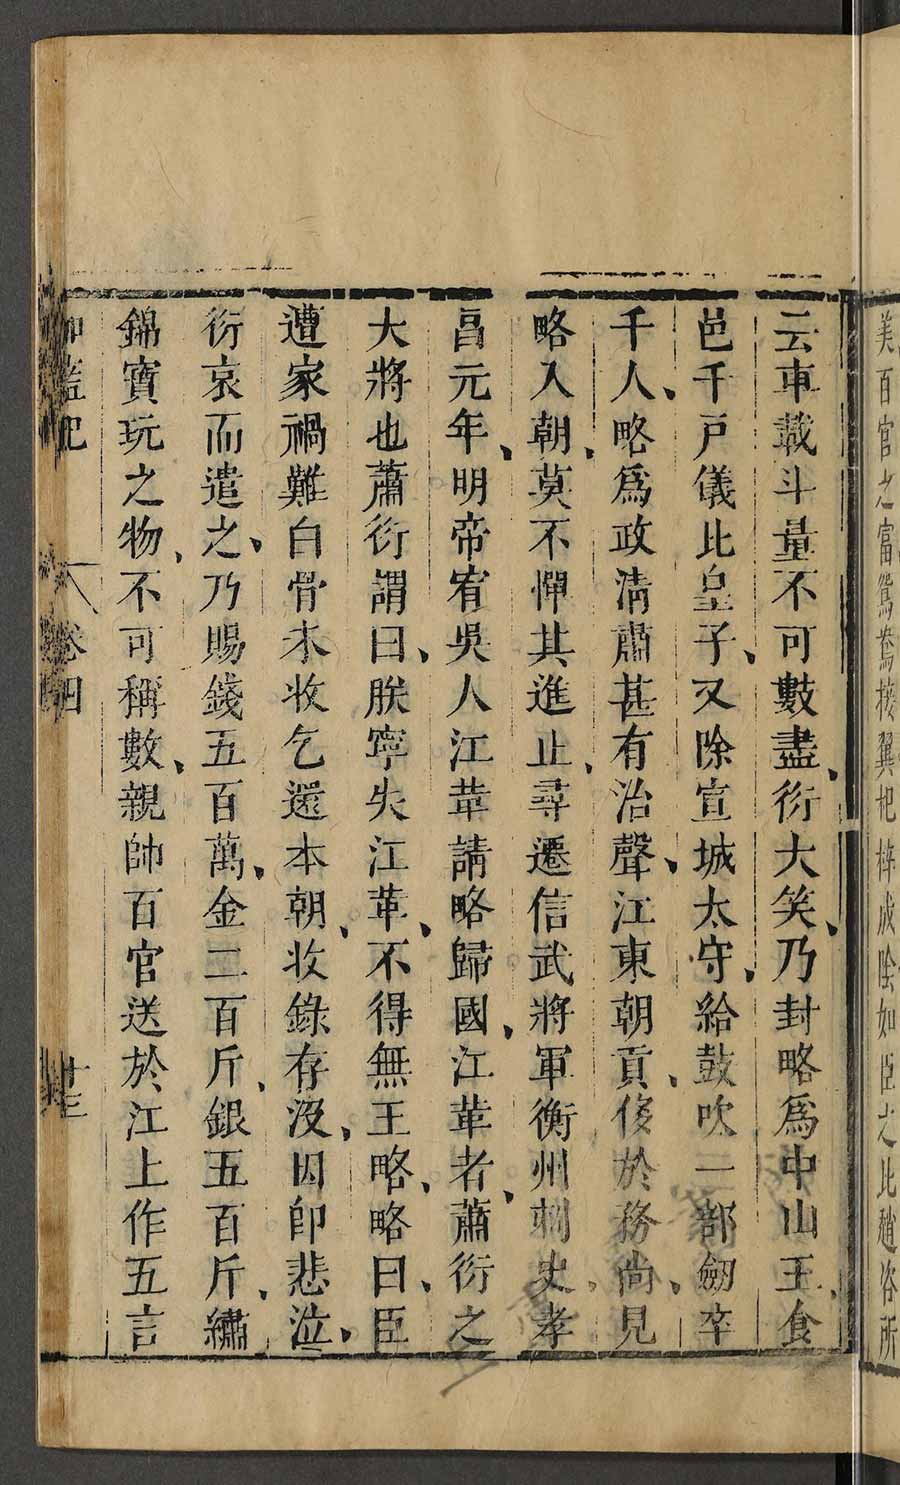 美百官之富鴛鸞接翼杞梓成陰如臣之比趙咨所
云車載斗量不可數盡衍大笑乃封略爲中山王食
邑千戸儀比皇子又除宣城太守給鼓吹一部劒卒
千人略爲政清肅甚有治聲江東朝貢侈於務尚見
略入朝莫不憚其進止尋遷信武將軍衡州刺史孝
昌元年明帝宥吳人江革請略歸國江革者蕭衍之
大將也蕭衍謂曰朕寧失江革不得無王略略曰臣
遭家禍難白骨未收乞還本朝收錄存没因卽悲泣
衍哀而遣之乃賜錢五百萬金二百斤銀五百斤繡
錦寶玩之物不可稱數親帥百官送於江上作五言
伽藍記 卷四 十三